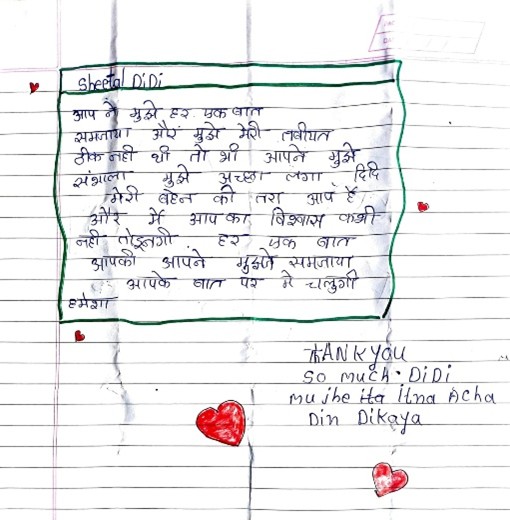 Sheetal DiDi
आप ने मुझे हर एक बात
समजाया और मुझे मेरी तबीयत
ठीक नही थी तो भी आपने मुझे
संभाला मुझे अच्छा लगा दिदि
मेरी बहेन की तरा आप है
और मैं आप का विश्वास कभी
नही तोडुनगी हर एक बात
आपकी आपने मुझे समजाया
आपके बात पर मे चलुगी
हमेशा
THANK YOU
so much. DiDi
mujhe itna Acha
Din Dikaya